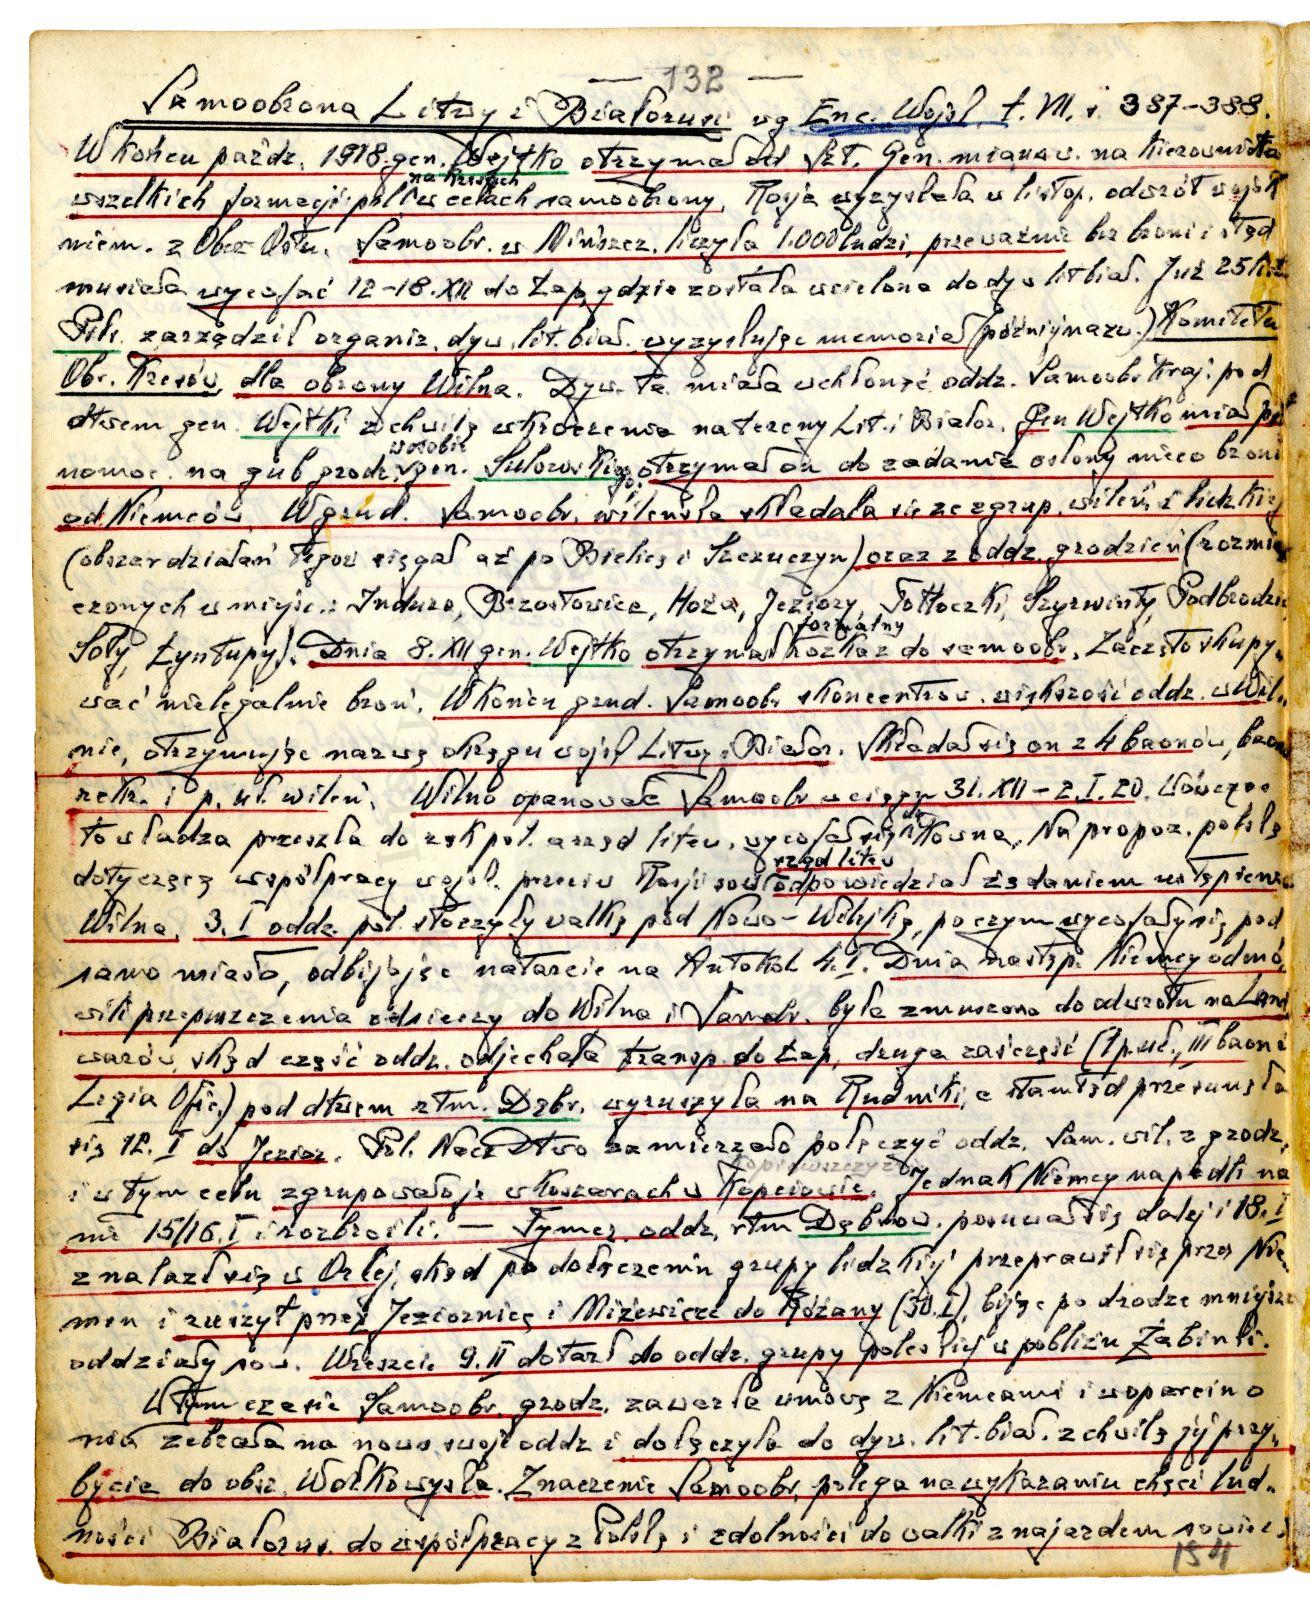 — 132 —
Samoobrona Litwy i Białorusi wg Enc. Wojsk. t. VII, s. 387-388.
W końcu paźdz. 1918 gen. Wejtko otrzymał od Szt. Gen. mianow. na kierownika
na kresach
wszelkich formacji pol. w celach samoobrony. Rosja wyzyskała w listop. odwrót wojsk
niem. z Ober Ostu. Samoobr. w Mińszcz. liczyła 1.000 ludzi, przeważnie bez broni i stąd
musiała wycofać 12-18.XII do Łap, gdzie została wcielona do dyw. lit. biał. Już 25 list.
Piłs. zarządził organiz. dyw. lit. biał. wyzyskując memoriał (późniý nazw.) Komitetu
Obr. Kresów dla obrony Wilna. Dyw. ta miała wchłonąć oddz. Samoobr. kraj. pod
dtwem gen. Wejtki z chwilą wkroczenia na tereny Lit. i Białor. Gen Wejtko miał peł
w osobie
nomoc. na gub. grodz. gen. Sulewskiego, otrzymał on do zadania osłony nieco broni
od Niemców. W grud. Samoobr. wileńska składała się ze zgrup. wileń. i lidzkiej
(obszar działań tegoż sięgał aż po Bielicę i Szczuczyn) oraz z oddz. grodzień (rozmie
szczonych w miejsc.: Indura, Brzostowica, Hoża, Jeziory, Tołłoczki, Szyrwinty, Podbrodzie
formalny
Soły, Łyntupy). Dnia 8.XII gen. Wejtko otrzymał rozkaz do samoobr. Zaczęto skupy-
wać nielegalnie broń. W końcu grud. Samoobr. skoncentrow. większość oddz. w Wil-
nie, otrzymując nazwę okręgu wojsk Litwy i Białor. Składał się on z 4 baonów, baonu
rekr. i p. uł. wileń. Wilno opanowała Samoobr. w ciągu 31.XII - 2.I.20. Wówczas
to władza przeszła do rąk pol. a rząd litew. wycofał się do Kowna. Na propoz. polską
rząd litew
dotyczącą współpracy wojsk. przeciw Rosji sow. odpowiedział żądaniem ustąpienia
Wilna. 3.I oddz. pol. stoczyły walkę pod Nowo-Wilejką, po czym wycofały się pod
samo miasto, odbijając natarcie na Antokol 4.I. Dnia następ. Niemcy odmó-
wili przepuszczenia odsieczy do Wilna i Samobr. była zmuszona do odwrotu na Land
warów, skąd część oddz. odjechała transp. do Łap, druga zaś część (1 p. uł., III baon i
Legia Ofic.) pod dtwem rtm. Dąbr. wyruszyła na Rudniki, a stamtąd przesunęła
się 12.I do Jezior. Pol. Nacz Dtwo zamierzało połączyć oddz. Sam. wil. z grodz.
i w tym celu zgrupowało je w koszarach w Kopciowie. Jednak Niemcy napadli na
nie 15/16.I i rozbroili. — Tymcz. oddz. rtm Dąbrow. posuwał się dalej i 18.I
znalazł się w Orlej, skąd po dołączeniu grupy lidzkiej przeprawił się przez Nie
men i ruszył przez Jeziornicę i Miżewicze do Różany (30.I), bijąc po drodze mniejsze
oddziały sow. Wreszcie 9.II dotarł do oddz. grupy poleskiej w pobliżu Żabinki.
W tym czasie Samoobr. grodz. zawarła umowę z Niemcami i w oparciu o
nią zebrała na nowo swoje oddz i dołączyła do dyw. lit. biał. z chwilą jej przy-
bycia do obsz. Wołkowyska. Znaczenie Samoobr. polega na wykazaniu chęci lud-
ności Białorus. do współpracy z Polską i zdolności do walki z najazdem sowiec
154